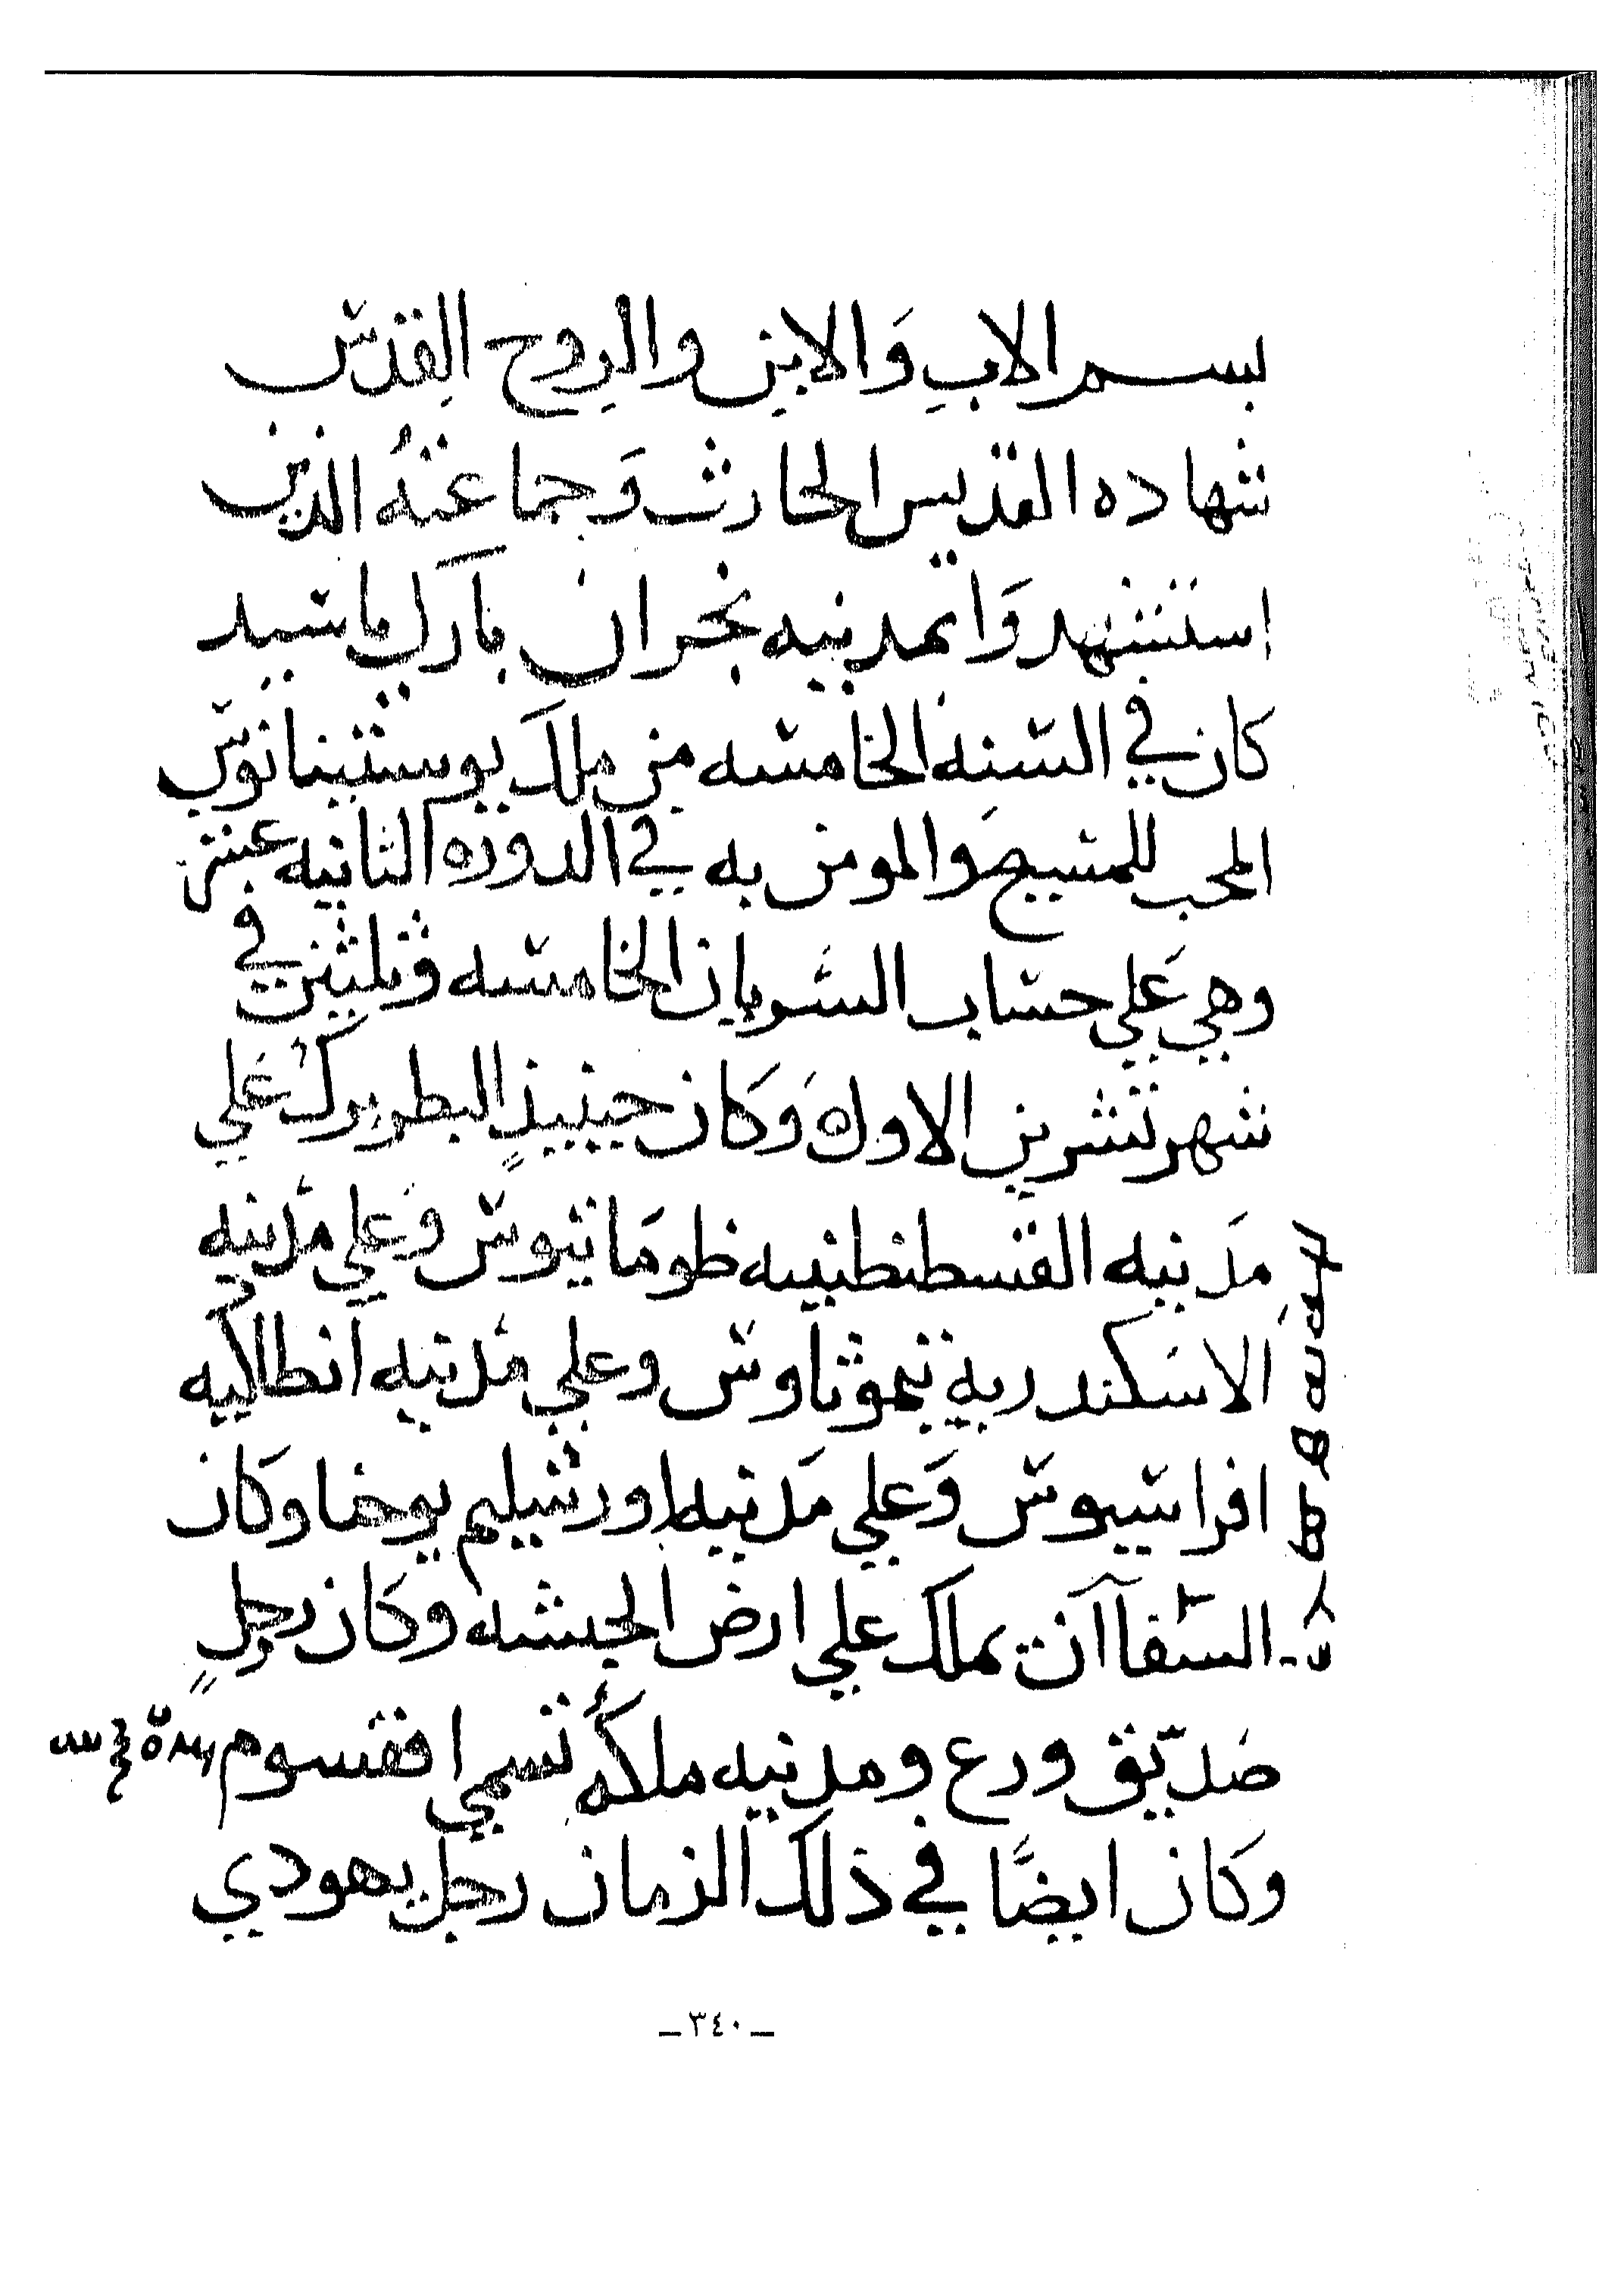 بسم الاب وَالابن والروح القدس
شهاده القديس الحارث وَجماعتهُ الذين
استشهدوَا بمدينيه نجران بارك ياسيد
كان في السنه الخامسه من ملك يوستينيانوس
المحب للمسيح والمومن به في الدوره الثانيه عشر
وهي عَلي حساب السريان الخامسه وثلثين في
شهر تشرين الاول وَكان حينيذٍ البطريرك عَلي
مَدينيه القسطنطينيه طومَاثيوس وعَلي مَدينيه
الاسكندرية تيموثاوس وعلي مَدينيه انطاكيه
افراسيوس وَعلي مَدينيه اورشيليم يوحنا وكان
السفاآن يملك علي ارض الحبشه وكان رجلٍ
صديق ورع ومدينيه ملكه تسمي افقسوم
وكان ايضًا في ذلك الزمان رجل يهودي
ـ٣٤٠ـ